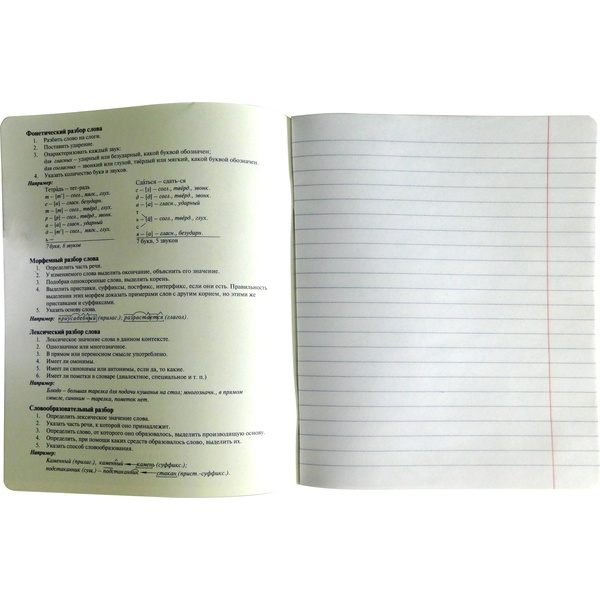 Фонетический разбор слова
1. Разбить слово на слоги.
2. Поставить ударение.
3. Охарактеризовать каждый звук:
для гласных – ударный или безударный, какой буквой обозначен;
для согласных – звонкий или глухой, твёрдый или мягкий, какой буквой обозначен.
4. Указать количество букв и звуков.
Например:
Тетрадь – тет-радь
т – [т'] – согл., мягк., глух.
е – [и] – гласн. безударн.
т – [т] – согл., твёрд., глух.
р – [р] – согл., твёрд., звонк.
а – [а] – гласн., ударный
д – [т'] – согл., мягк., глух.
ь –
7 букв, 6 звуков
Сдаться – сдать-ся
с – [з] – согл., твёрд., звонк.
д – [д] – согл., твёрд., звонк.
а – [а] – гласн., ударный
т
ь – [ц] – согл., твёрд., глух.
с
я – [а] – гласн., безударн.
7 букв, 5 звуков
Морфемный разбор слова
1. Определить часть речи.
2. У изменяемого слова выделить окончание, объяснить его значение.
3. Подобрав однокоренные слова, выделить корень.
4. Выделить приставки, суффиксы, постфикс, интерфикс, если они есть. Правильность
выделения этих морфем доказать примерами слов с другим корнем, но этими же
приставками и суффиксами.
5. Указать основу слова.
Например: приусадебный (прилаг.); разрастается (глагол).
Лексический разбор слова
1. Лексическое значение слова в данном контексте.
2. Однозначное или многозначное.
3. В прямом или переносном смысле употреблено.
4. Имеет ли омонимы.
5. Имеет ли синонимы или антонимы, если да, то какие.
6. Имеет ли пометки в словаре (диалектное, специальное и т. п.)
Например:
Блюдо – большая тарелка для подачи кушания на стол; многозначн., в прямом
смысле, синоним – тарелка, пометок нет.
Словообразовательный разбор
1. Определить лексическое значение слова.
2. Указать часть речи, к которой оно принадлежит.
3. Определить слово, от которого оно образовалось, выделить производящую основу.
4. Определить, при помощи каких средств образовалось слово, выделить их.
5. Указать способ словообразования.
Например:
Каменный (прилаг.), каменный ← камень (суффикс.);
подстаканник (сущ.) – подстаканник ← стакан (прист.-суффикс.).